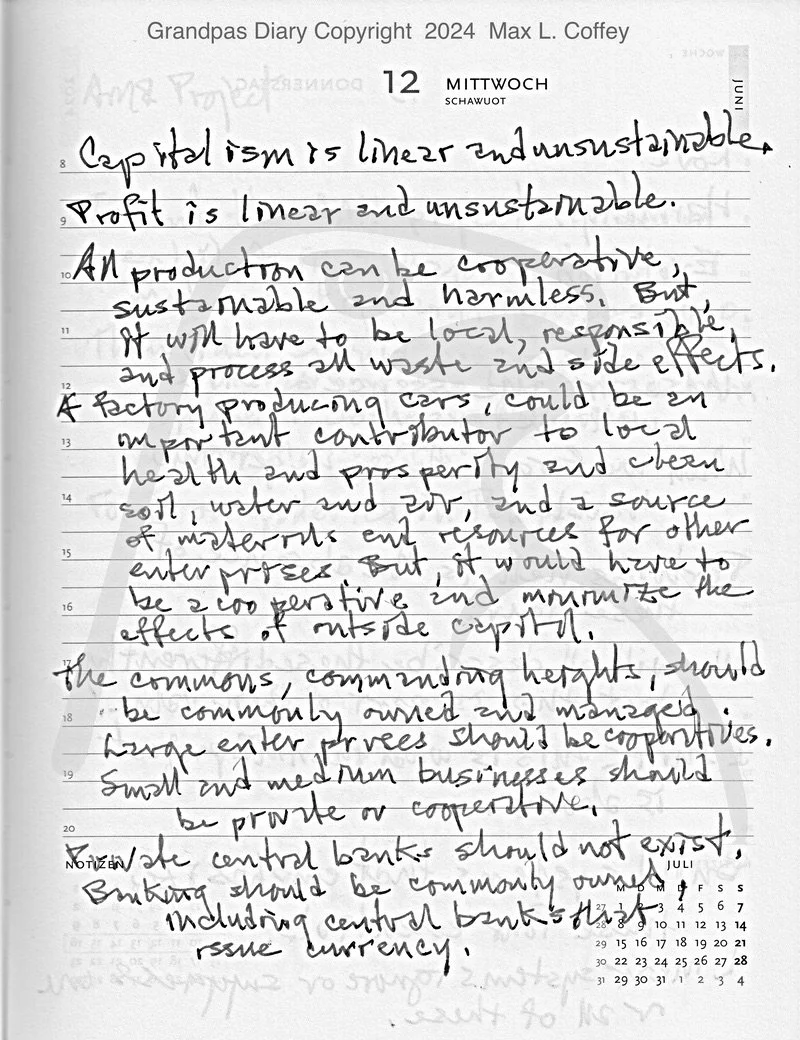 Grandpas Diary Copyright 2024 Max L. Coffey
12 MITTWOCH
SCHAWUOT
JUNI
8 Capitalism is linear and unsustainable.
9 Profit is linear and unsustainable.
10 All production can be cooperative,
sustainable and harmless. But,
11 it will have to be local, responsible,
and process all waste and side effects.
12
A factory producing cars, could be an
13 important contributor to local
health and prosperity and clean
14 soil, water and air, and a source
of materials and resources for other
15 enterprises. But, it would have to
16 be a cooperative and minimize the
effects of outside capital.
17 the commons, commanding heights, should
18 be commonly owned and managed.
Large enterprises should be cooperatives.
19 Small and medium businesses should
be private or cooperative.
20
Private central banks should not exist.
NOTIZEN JULI
Banking should be commonly owned,
including central banks that
issue currency.
M D M D F S S
27 1 2 3 4 5 6 7
28 8 9 10 11 12 13 14
29 15 16 17 18 19 20 21
30 22 23 24 25 26 27 28
31 29 30 31 1 2 3 4